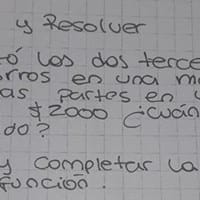 y Resolver
tó los dos terce
rros en una m
as partes en
$2000 ¿cuán
do?
y completar la
función.